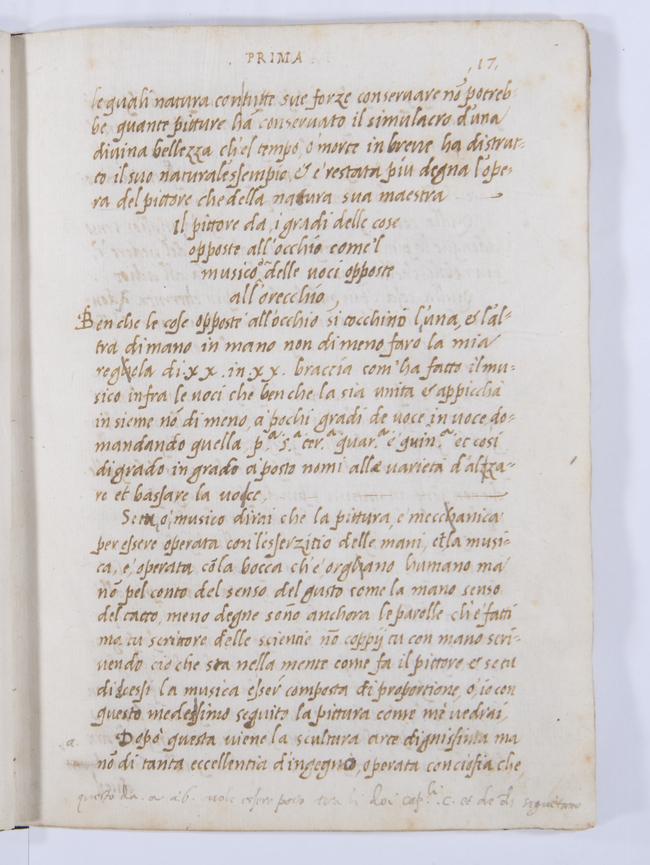 PRIMA
17.
le quali natura con tutte sue forze conservare nõ potreb-
be, quante pitture hã conservato il simulacro d'una
divina bellezza ch'el tempo, o' morte in breve ha distrut-
to il suo naturale essempio, & e' restata piu degna l'ope-
ra del pittore che della natura sua maestra
Il pittore da, i gradi delle cose
opposte all'occhio come'l
musico delle voci opposte
all'orecchio,
Benche le cose opposte all'occhio si tocchino l'una, e l'al-
tra di mano in mano non di meno farò la mia
regola di .xx. in .xx. braccia com'ha fatto il mu-
sico infra le voci che benche la sia unita & appiccha
insieme nõ di meno, a pochi gradi de voce in voce do-
mandando quella pª. sª. ter.ª quar.ª e quin.ª et cosi
di grado in grado a posto nomi alle varietà d'alzza-
re et bassare la voce.
Se tu, o' musico dirai che la pittura, e' mecchanica
per essere operata con l'esserzitio delle mani, et la musi-
ca, e' operata cõ la bocca ch'è orghano humano ma
nõ pel conto del senso del gusto come la mano senso
del tatto, meno degne sono anchora le parolle ch'e' fatti
ma tu scrittore delle scientie nõ coppij tu con mano scri-
vendo cio che sta nella mente come fa il pittore & se tu
dicessi la musica esser composta di proportione, o, io con
questo medessimo seguito la pittura come me vedrai,
Dopò questa viene la scultura arte dignissima ma
nõ di tanta eccellentia d'ingegno, operata conciosia che,
a.
questo da . a a .b. vole essere posto
cap.li .c. et de d. seguitare